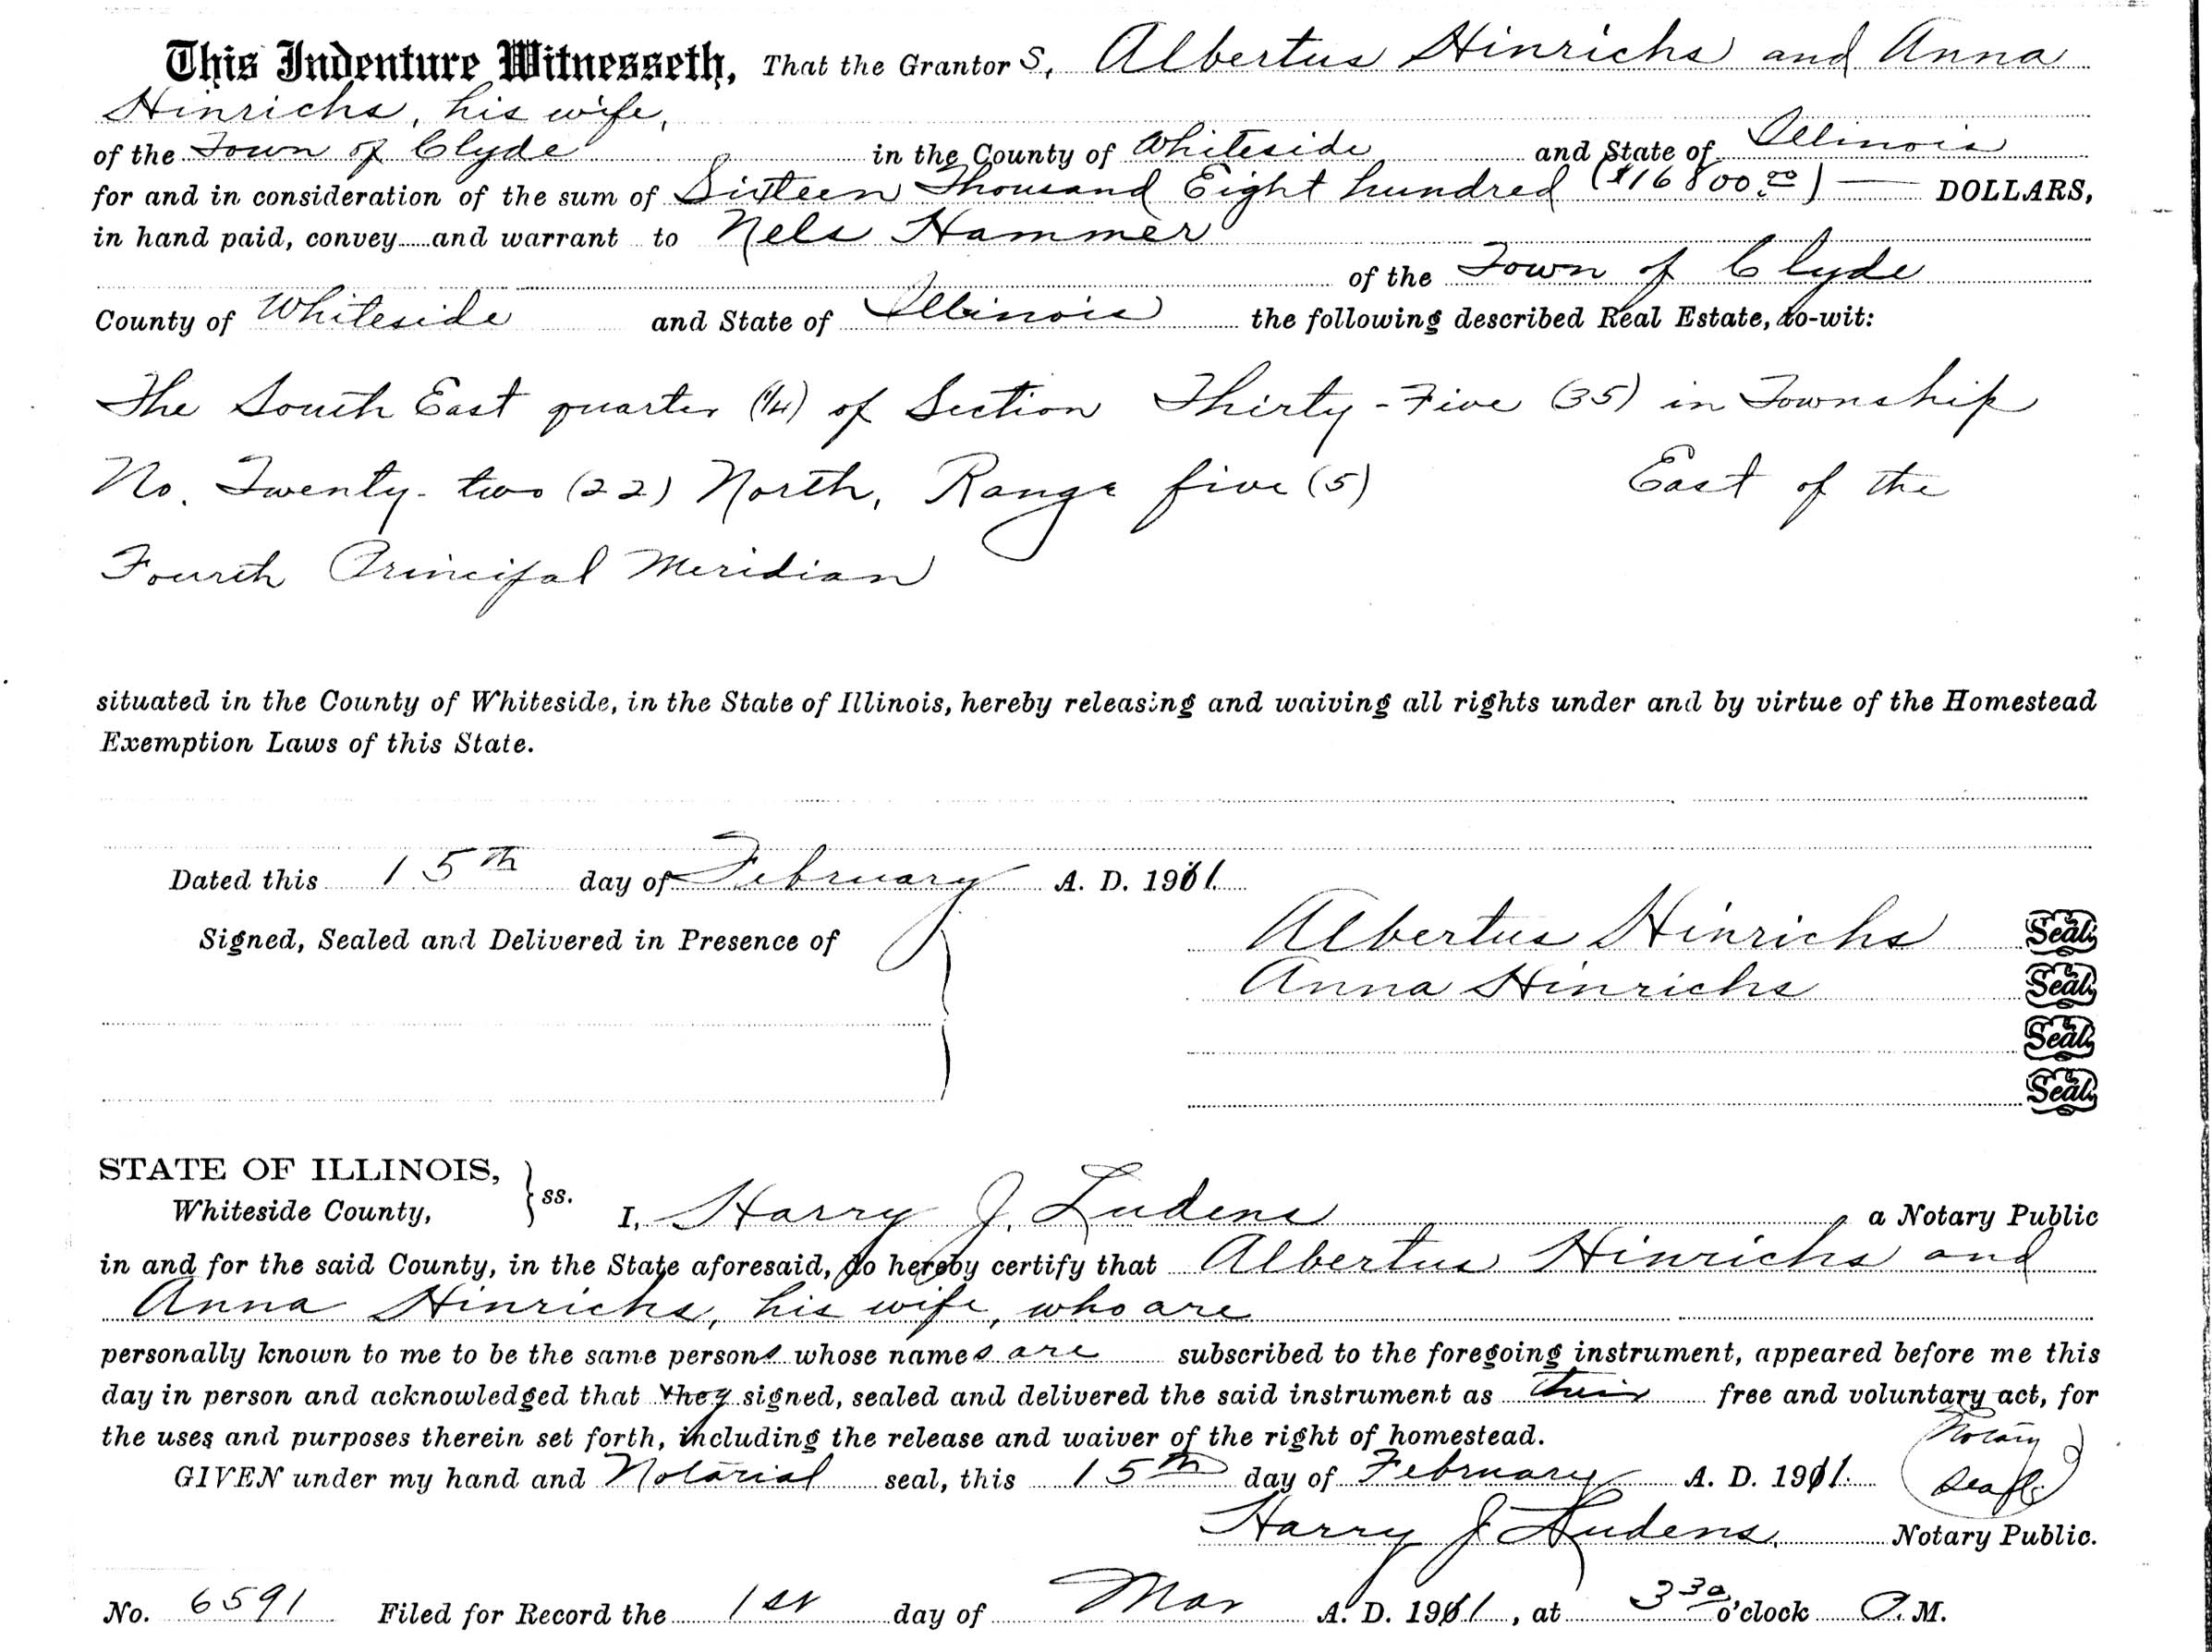 This Indenture Witnesseth, That the Grantor s, Albertus Hinrichs and Anna
Hinrichs, his wife,
of the Town of Clyde in the County of Whiteside and State of Illinois
for and in consideration of the sum of Sixteen Thousand Eight hundred ($16800.00) DOLLARS,
in hand paid, convey and warrant to Nels Hammer
of the Town of Clyde
County of Whiteside and State of Illinois the following described Real Estate, to-wit:
The South East quarter (1/4) of Section Thirty-Five (35) in Township
No. Twenty-two (22) North, Range five (5) East of the
Fourth Principal Meridian
situated in the County of Whiteside, in the State of Illinois, hereby releasing and waiving all rights under and by virtue of the Homestead
Exemption Laws of this State.
Dated this 15th day of February A. D. 1911.
Signed, Sealed and Delivered in Presence of
Albertus Hinrichs Seal
Anna Hinrichs Seal
Seal
Seal
STATE OF ILLINOIS,
Whiteside County, } ss. I, Harry J. Ludens a Notary Public
in and for the said County, in the State aforesaid, do hereby certify that Albertus Hinrichs and
Anna Hinrichs, his wife, who are
personally known to me to be the same persons whose names are subscribed to the foregoing instrument, appeared before me this
day in person and acknowledged that they signed, sealed and delivered the said instrument as their free and voluntary act, for
the uses and purposes therein set forth, including the release and waiver of the right of homestead.
GIVEN under my hand and Notarial seal, this 15th day of February A. D. 1911. Notary Seal
Harry J Ludens, Notary Public.
No. 6591 Filed for Record the 1st day of Mar A. D. 1911, at 3 30 o'clock P. M.